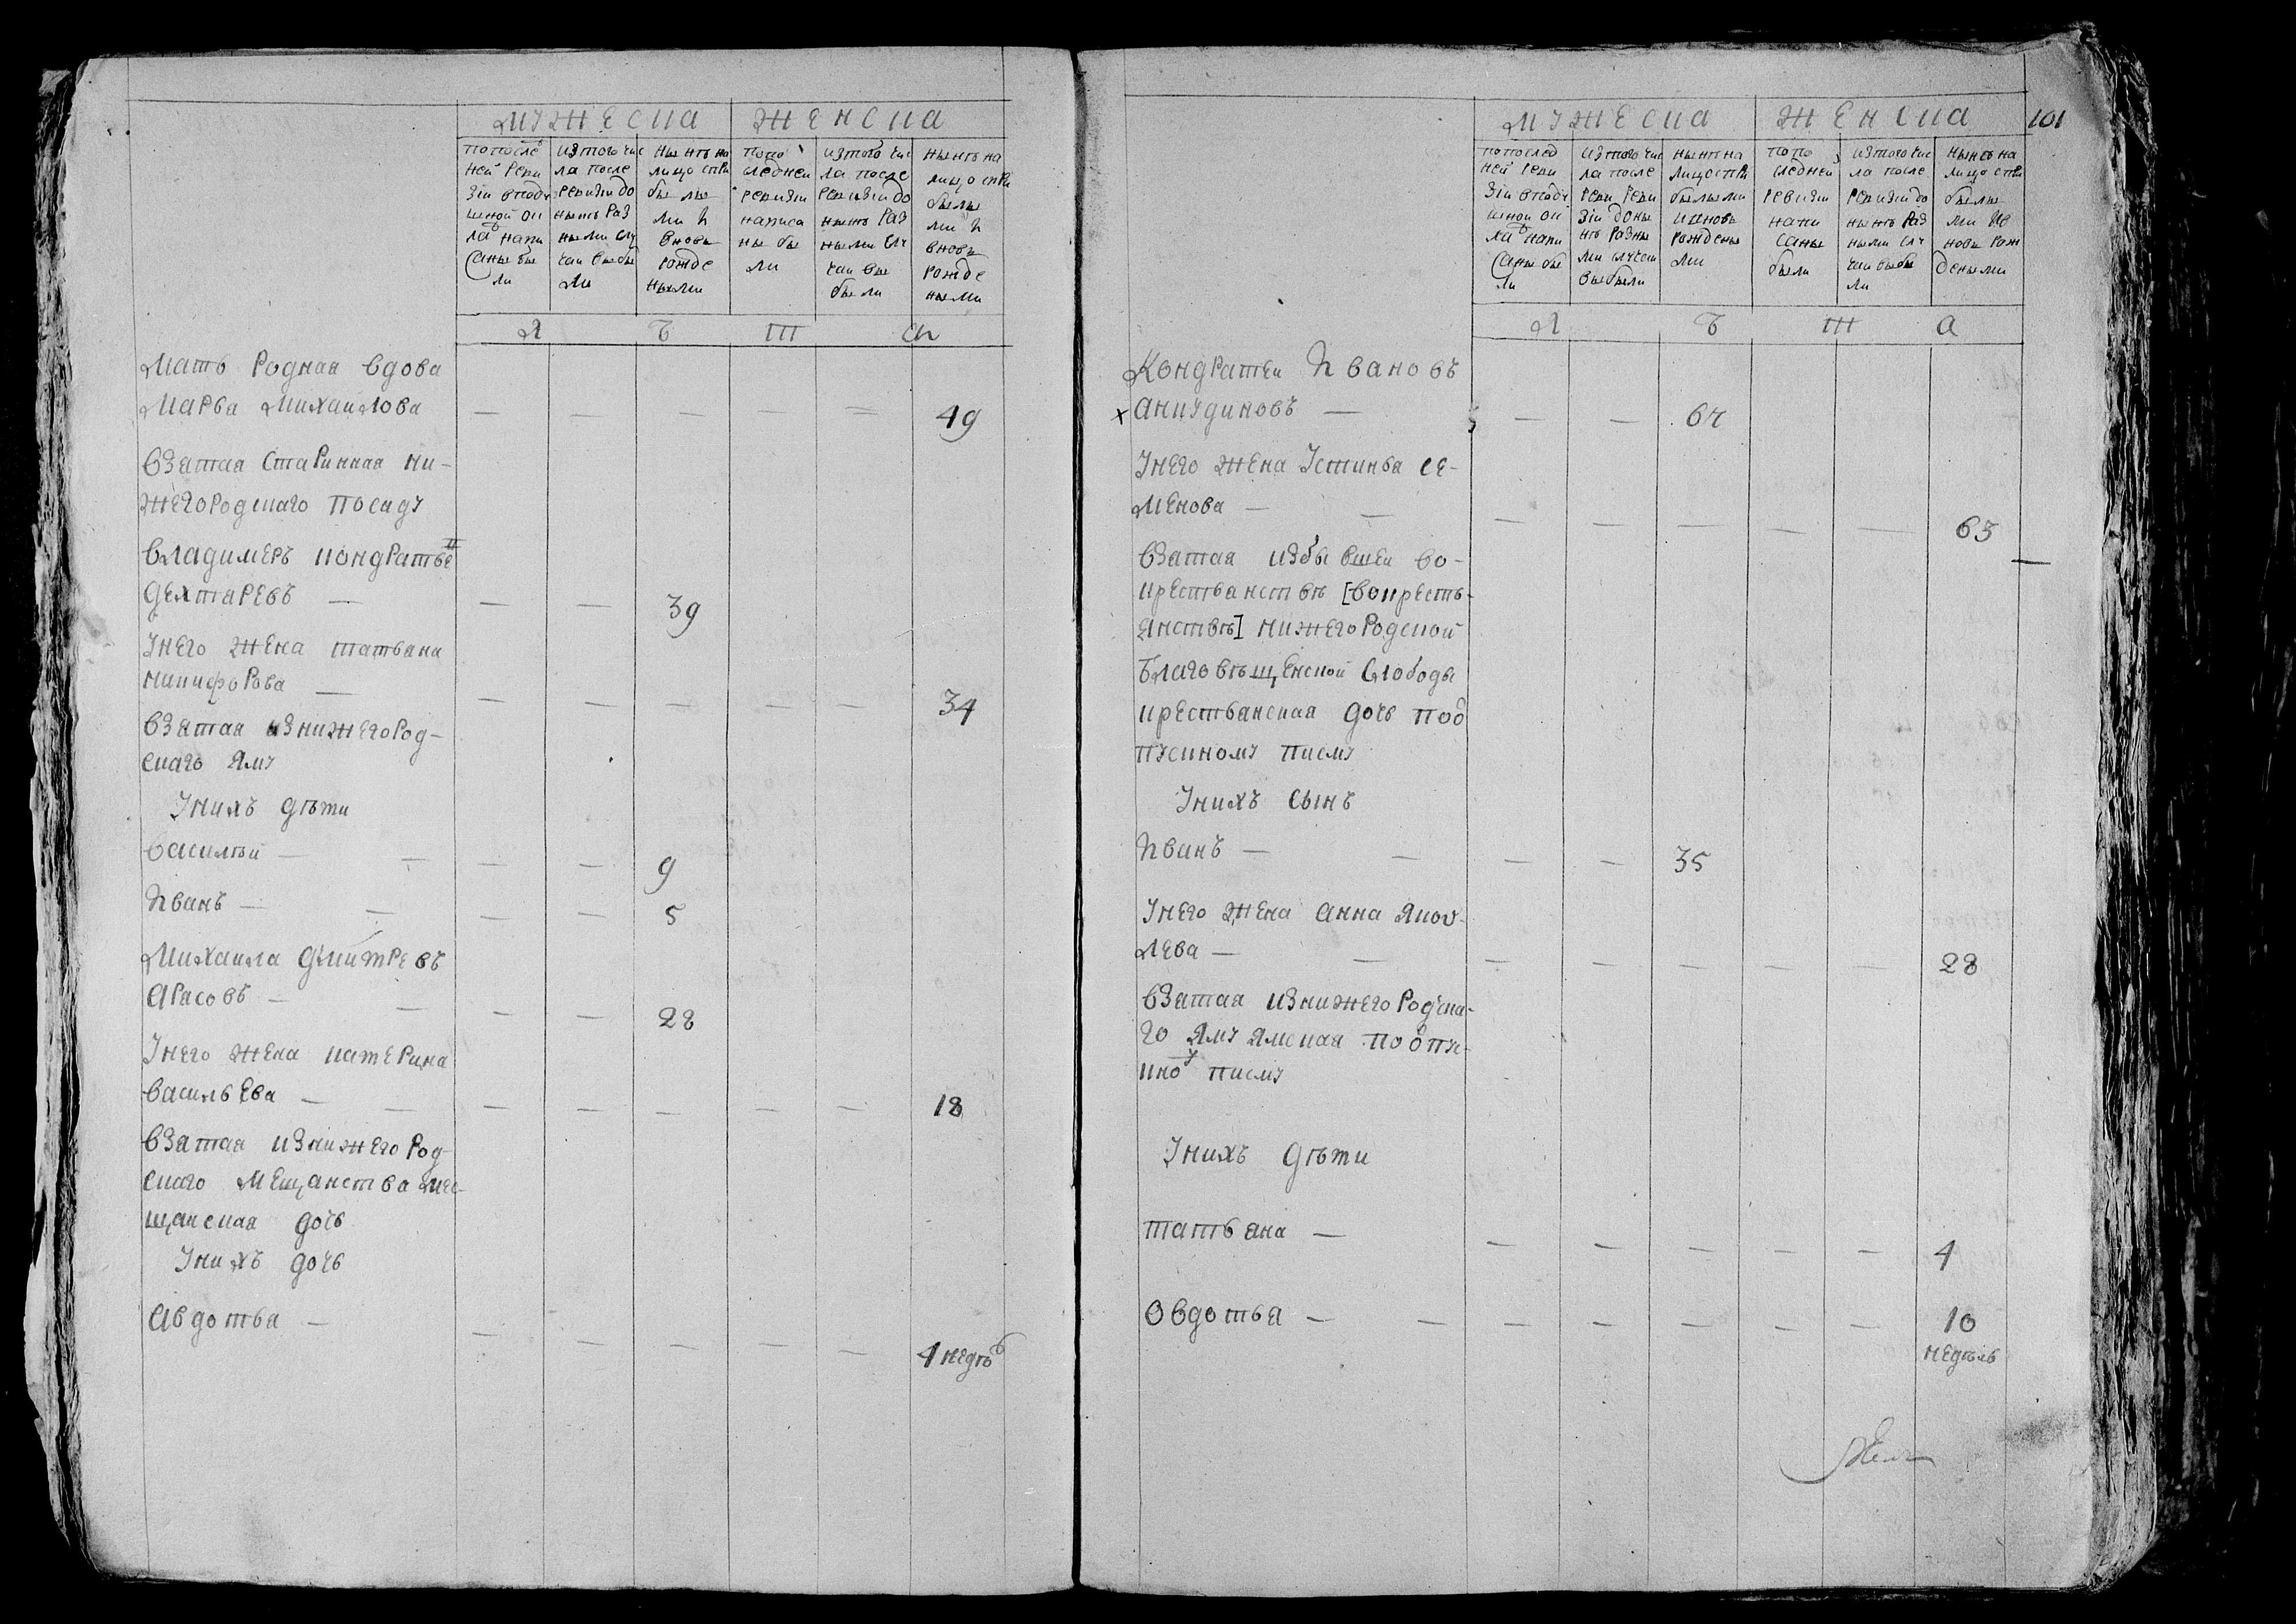 мужеска женска
попосле ней реви зіи вподу шной ок ладъ напи саны бы ли
изтого чис ла после ревизіи до нынѣ раз ными слу чаи выбы ли
нынѣ на лицо спри былы ми и вновь рожде ными
попо следнеи ревизіи написа ны бы ли
изтого чис ла после ревизіи до нынѣ раз ными слу чаи вы были
нынѣ на лицо спри былы ми и вновь рожде ными
Л Ѣ Т А
Мать родная вдова
Марѳа михаилова — — — — — 49
взятая старинная ни-
жегородскаго посаду
владимеръ кондратьев
дехтаревъ — — — 39
Унего жена татьяна
никифорова — — — — — — 34
взятая изнижегород-
скаго яму
Унихъ дѣти
василѣй — — — — 9
иванъ — — — — 5
Михаила дмитревъ
арасовъ — — — — 28
Унего жена катерина
васильева — — — — — — — 18
взятая изнижегород
скаго мещанства ме-
щанская дочь
Унихъ дочь
авдотья — — — — — — 4 недѣ
101
мужеска женска
попослед ней реви зіи вподу шной ок ладъ напи саны бы ли
изтого чис ла после реви зіи доны нѣ разны ми случеи выбыли
нынѣ на лицо спри былыми ивновь рождены ми
попо следней ревизіи напи саны были
изтого чис ла после ревизіи до нынѣ раз ными слу чаи выбы ли
нынѣ на лицо спри былы ми ив новь рож деными
Л Ѣ Т А
Кондратеи ивановъ
х аникудиновъ — — — 64
Унего жена Устинья се-
менова — — — — — — — 63
взятая избывшеи во-
крестьянствѣ [вокресть-
янствѣ] нижегородской
благовѣщенской слободы
крестьянская дочь пооб
пускному писму
Унихъ сынъ
иванъ — — — — 35
Унего жена анна яков-
лева — — — — — — — 28
взятая изнижегородска-
го яму ямская поотпу-
скно писму
Унихъ дѣти
татьяна — — — — — — 4
овдотья — — — — — — — 10
недѣль